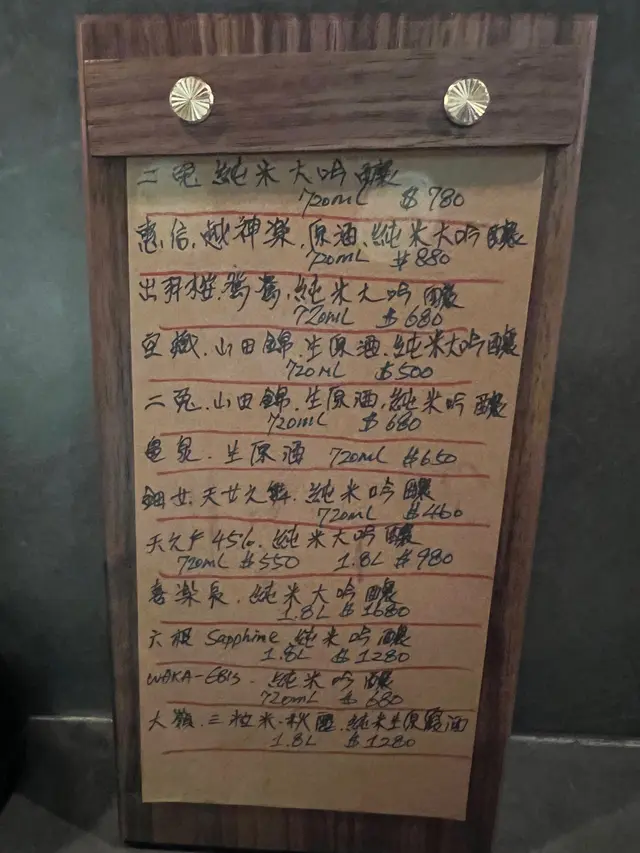 二兎 純米大吟釀
720mL $780
惠信.越神楽.原酒.純米大吟釀
720mL $880
出羽桜.鴛鴦.純米大吟釀
720mL $680
山田錦.生原酒.純米大吟釀
720mL $500
二兎.山田錦.生原酒.純米吟釀
720mL $680
生原酒 720mL $650
純米吟釀
720mL $460
45%.純米大吟釀
720mL $550 1.8L $980
喜楽長.純米大吟釀
1.8L $1680
六根 Sapphire 純米吟釀
1.8L $1280
WAKA-EBIS.純米吟釀
720mL $680
大嶺.三粒米.純米生原酒
1.8L $1280